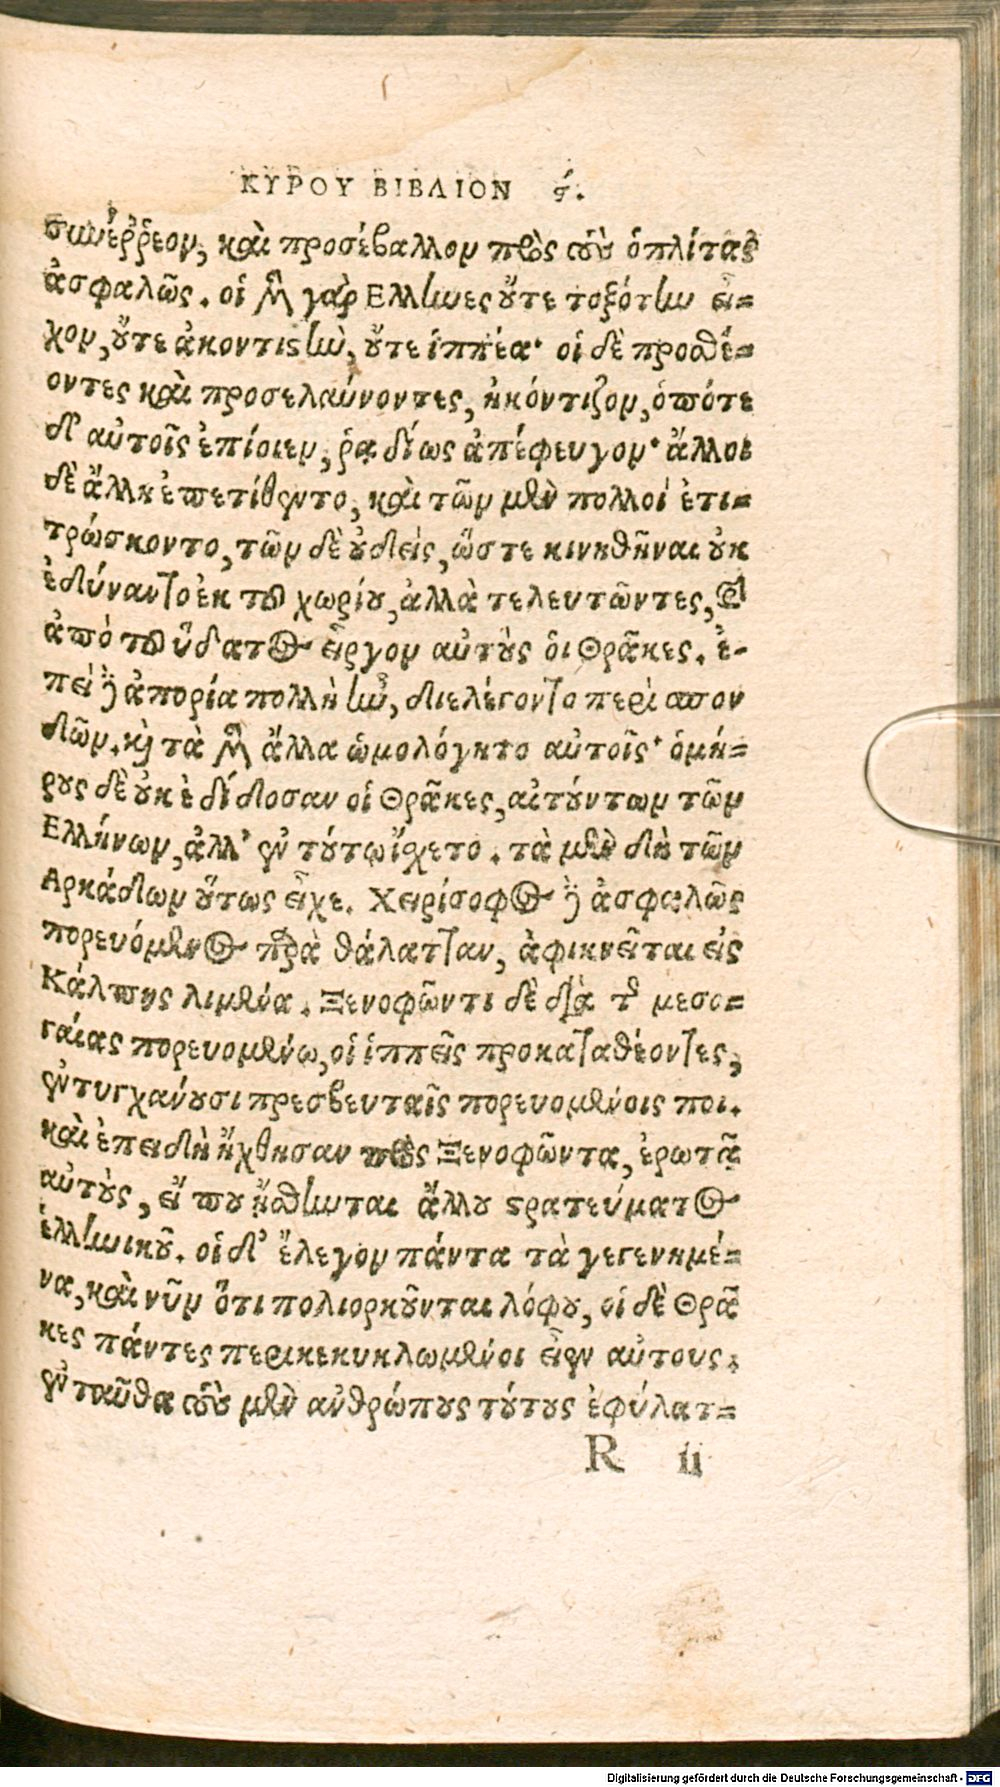 ΚΥΡΟΥ ΒΙΒΛΙΟΝ ϛ́.
συνέῤῥεον, καὶ προσέβαλλον πρὸς τοὺς ὁπλίτας
ἀσφαλῶς. οἱ μὲν γὰρ Ελληνες οὔτε τοξότην εἶ=
χον, οὔτε ἀκοντιστὴν, οὔτε ἱππέα· οἱ δὲ προσθέ=
οντες καὶ προσελαύνοντες, ἠκόντιζον, ὁπότε
δ' αὐτοῖς ἐπίοιεν, ῥᾳδίως ἀπέφευγον· ἄλλοι
δὲ ἄλλῃ ἐπετίθεντο, καὶ τῶν μὲν πολλοὶ ἐτι=
τρώσκοντο, τῶν δὲ οὐδεὶς, ὥστε κινηθῆναι οὐκ
ἐδύναντο ἐκ τοῦ χωρίου, ἀλλὰ τελευτῶντες, καὶ
ἀπὸ τοῦ ὕδατος εἶργον αὐτοὺς οἱ Θρᾷκες. ἐ-
πεὶ δὲ ἀπορία πολλὴ ἦν, διελέγοντο περὶ σπον
δῶν. καὶ τὰ μὲν ἄλλα ὡμολόγητο αὐτοῖς· ὁμή=
ρους δὲ οὐκ ἐδίδοσαν οἱ Θρᾷκες, αἰτούντων τῶν
Ελλήνων, ἀλλ' ἐν τούτῳ ἴσχετο. τὰ μὲν δὴ τῶν
Αρκάδων οὕτως εἶχε. Χειρίσοφος δὲ ἀσφαλῶς
πορευόμενος παρὰ θάλατταν, ἀφικνεῖται εἰς
Κάλπης λιμένα. Ξενοφῶντι δὲ διὰ τῆς μεσο=
γαίας πορευομένῳ, οἱ ἱππεῖς προκαταθέοντες,
ἐντυγχάνουσι πρεσβευταῖς πορευομένοις ποι.
καὶ ἐπειδὴ ἤχθησαν πρὸς Ξενοφῶντα, ἐρωτᾷ
αὐτοὺς, εἴ που ᾔσθηνται ἄλλου στρατεύματος
ἑλληνικοῦ. οἱ δ' ἔλεγον πάντα τὰ γεγενημέ=
να, καὶ νῦν ὅτι πολιορκοῦνται λόφου, οἱ δὲ Θρᾷ
κες πάντες περικεκυκλωμένοι εἶεν αὐτους.
ἐνταῦθα τοὺς μὲν ἀνθρώπους τούτους ἐφύλατ=
R ii
Digitalisierung gefördert durch die Deutsche Forschungsgemeinschaft - DFG